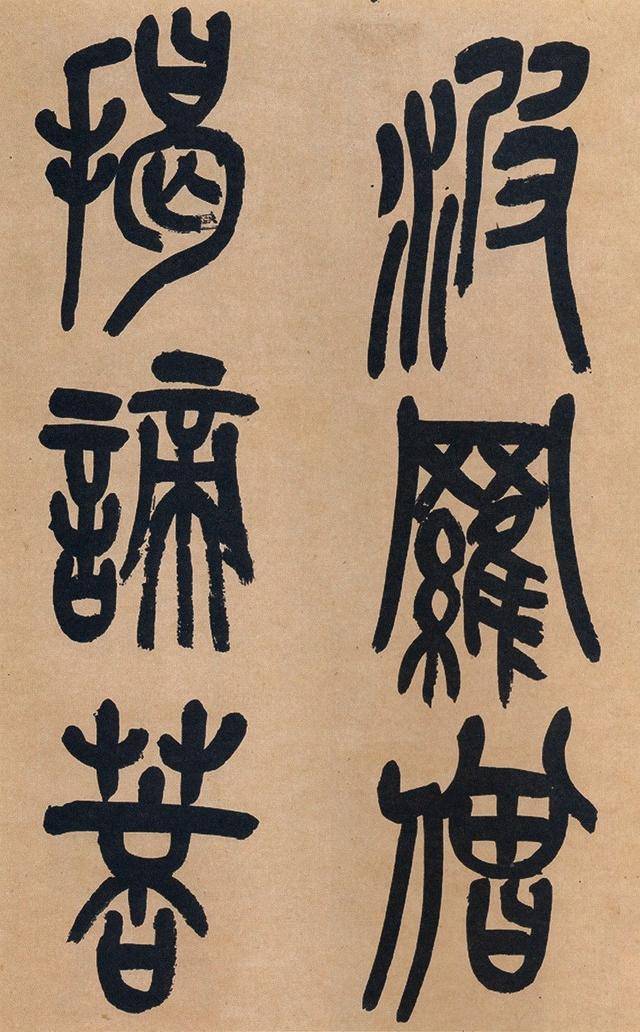 波羅僧
揭諦菩